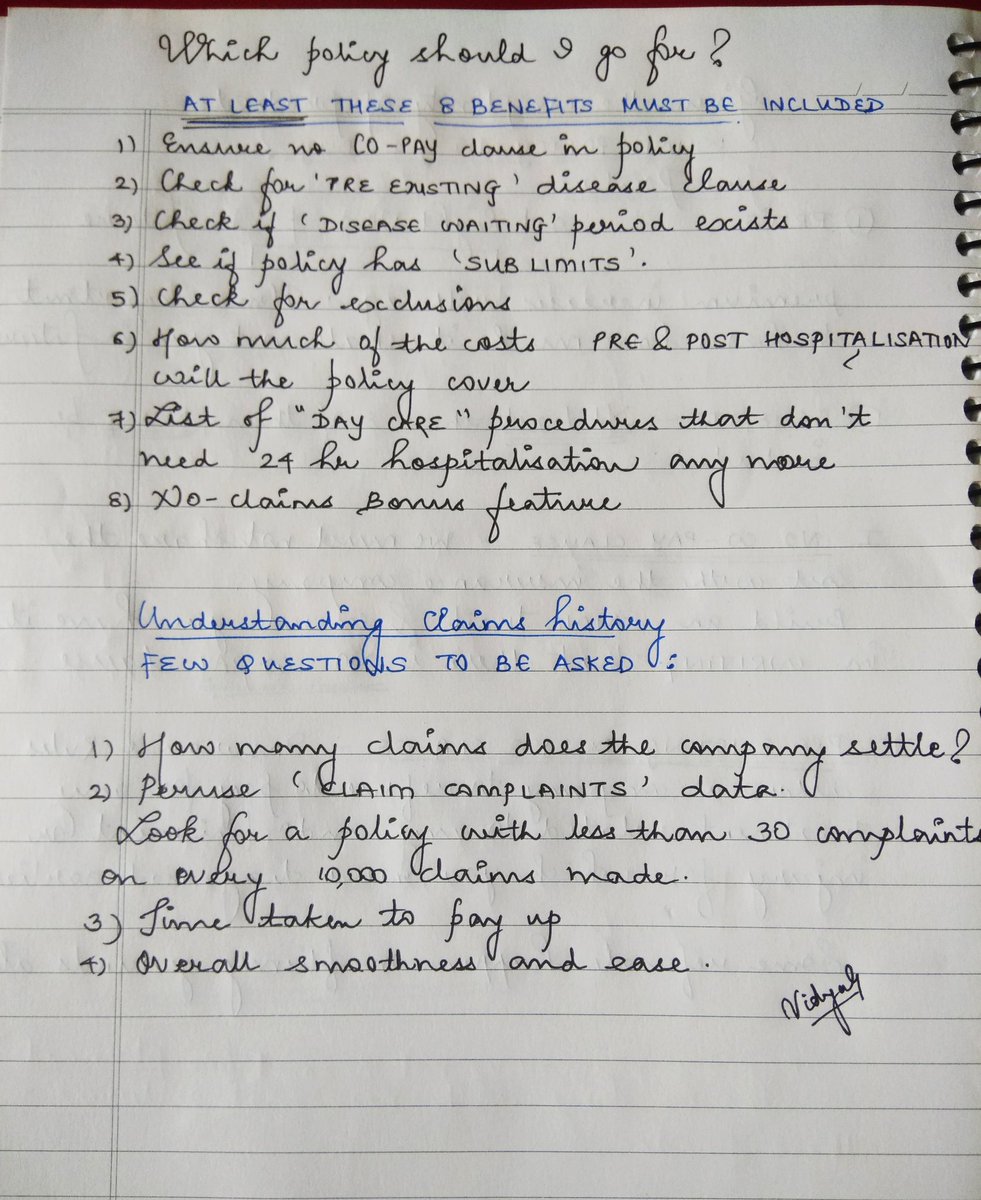 Which policy should I go for?
AT LEAST THESE 8 BENEFITS MUST BE INCLUDED
1) Ensure no CO-PAY clause in policy
2) Check for 'PRE EXISTING' disease clause
3) Check if 'DISEASE WAITING' period exists
4) See if policy has 'SUB LIMITS'.
5) Check for exclusions
6) How much of the costs PRE & POST HOSPITALISATION
will the policy cover
7) List of "DAY CARE" procedures that don't
need 24 hr hospitalisation any more
8) No-claims Bonus feature
Understanding Claims history
FEW QUESTIONS TO BE ASKED :
1) How many claims does the company settle?
2) Peruse 'CLAIM COMPLAINTS' data.
Look for a policy with less than 30 complaints
on every 10,000 claims made.
3) Time taken to pay up
4) Overall smoothness and ease.